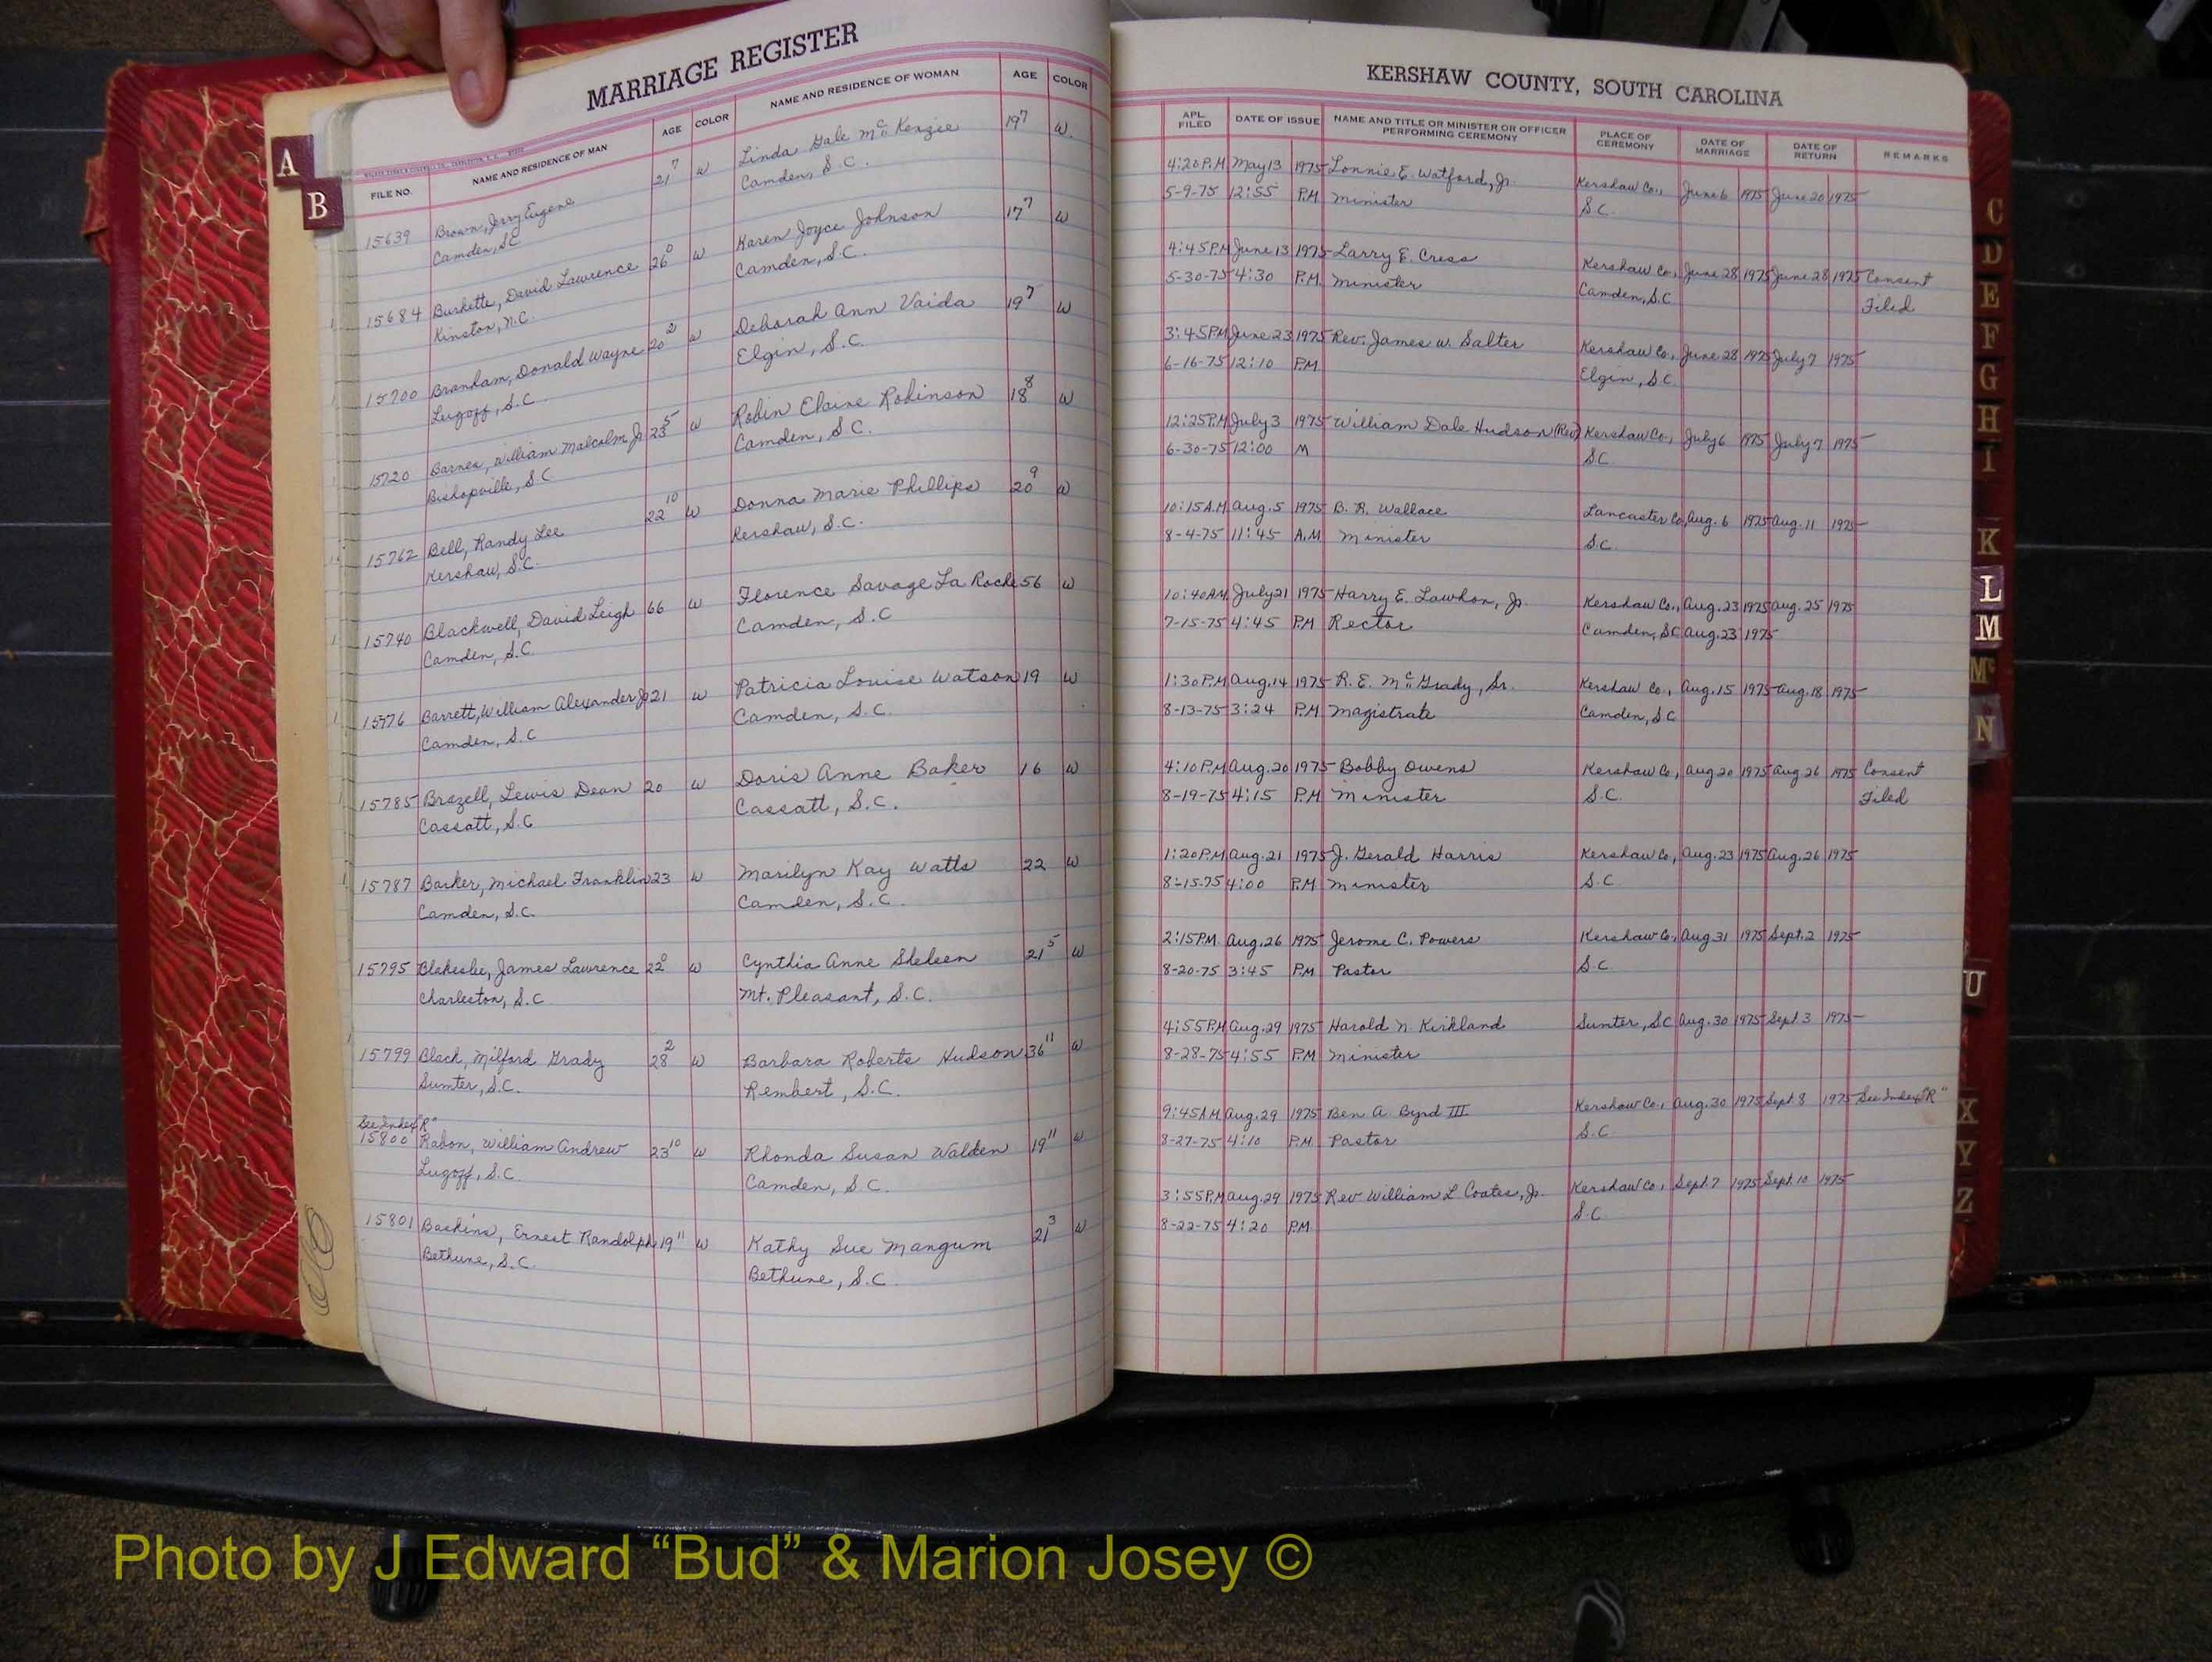 MARRIAGE REGISTER
FILE NO. NAME AND RESIDENCE OF MAN AGE COLOR NAME AND RESIDENCE OF WOMAN AGE COLOR
A
B
15639 Brown, Jerry Eugene 21 7 W Linda Gale McKenzie 19 7 W.
Camden, S.C. Camden, S.C.
15684 Burkette, David Lawrence 26 0 W Karen Joyce Johnson 17 7 W
Kinston, N.C. Camden, S.C.
15700 Branham, Donald Wayne 20 2 W Deborah Ann Vaida 19 7 W
Lugoff, S.C. Elgin, S.C.
15720 Barnes, William Malcolm Jr 23 5 W Robin Elaine Robinson 18 8 W
Bishopville, S.C Camden, S.C.
15762 Bell, Randy Lee 22 10 W Donna Marie Phillips 20 9 W
Kershaw, S.C. Kershaw, S.C.
15740 Blackwell, David Leigh 66 W Florence Savage La Roche 56 W
Camden, S.C. Camden, S.C
15776 Barrett, William Alexander Jr 21 W Patricia Louise Watson 19 W
Camden, S.C Camden, S.C.
15785 Brazell, Lewis Dean 20 W Doris Anne Baker 16 W
Cassatt, S.C Cassatt, S.C.
15787 Barker, Michael Franklin 23 W Marilyn Kay Watts 22 W
Camden, S.C. Camden, S.C.
15795 Blakeslee, James Lawrence 22 0 W Cynthia Anne Sheheen 21 5 W
Charleston, S.C Mt. Pleasant, S.C.
15799 Black, Milford Grady 28 2 W Barbara Roberts Hudson 36 11 W
Sumter, S.C. Rembert, S.C.
See Index "R"
15800 Rabon, William Andrew 23 10 W Rhonda Susan Walden 19 11 W
Lugoff, S.C. Camden, S.C.
15801 Baskins, Ernest Randolph 19 11 W Kathy Sue Mangum 21 3 W
Bethune, S.C. Bethune, S.C.
KERSHAW COUNTY, SOUTH CAROLINA
APL. FILED DATE OF ISSUE NAME AND TITLE OR MINISTER OR OFFICER PERFORMING CEREMONY PLACE OF CEREMONY DATE OF MARRIAGE DATE OF RETURN REMARKS
4:20 P.M May 13 1975 Lonnie E. Watford, Jr. Kershaw Co., June 6 1975 June 20 1975
5-9-75 12:55 P.M Minister S.C.
4:45 P.M June 13 1975 Larry E. Cress Kershaw Co., June 28 1975 June 28 1975 Consent
5-30-75 4:30 P.M. Minister Camden, S.C Filed
3:45 P.M June 23 1975 Rev. James W. Salter Kershaw Co., June 28 1975 July 7 1975
6-16-75 12:10 P.M Elgin, S.C.
12:25 P.M July 3 1975 William Dale Hudson (Rev) Kershaw Co., July 6 1975 July 7 1975
6-30-75 12:00 M S.C.
10:15 A.M. Aug. 5 1975 B. R. Wallace Lancaster Co, Aug. 6 1975 Aug. 11 1975
8-4-75 11:45 A.M Minister S.C.
10:40 AM. July 21 1975 Harry E. Lawhon, Jr. Kershaw Co., Aug. 23 1975 Aug. 25 1975
7-15-75 4:45 P.M Rector Camden, SC Aug. 23 1975
1:30 P.M Aug. 14 1975 R. E. McGrady, Sr. Kershaw Co., Aug. 15 1975 Aug. 18 1975
8-13-75 3:24 P.M Magistrate Camden, S.C
4:10 P.M Aug. 20 1975 Bobby Owens Kershaw Co, Aug 20 1975 Aug 26 1975 Consent
8-19-75 4:15 P.M Minister S.C. Filed
1:20 P.M Aug. 21 1975 J. Gerald Harris Kershaw Co, Aug. 23 1975 Aug. 26 1975
8-15-75 4:00 P.M. Minister S.C.
2:15 PM. Aug. 26 1975 Jerome C. Powers Kershaw Co, Aug 31 1975 Sept. 2 1975
8-20-75 3:45 P.M Pastor S.C.
4:55 P.M Aug. 29 1975 Harold N. Kirkland Sumter, S.C Aug. 30 1975 Sept 3 1975
8-28-75 4:55 P.M Minister
9:45 A.M. Aug. 29 1975 Ben A. Byrd III Kershaw Co., Aug. 30 1975 Sept 8 1975 See Index "R"
8-27-75 4:10 P.M. Pastor S.C.
3:55 P.M Aug. 29 1975 Rev William L Coates, Jr. Kershaw Co., Sept. 7 1975 Sept. 10 1975
8-22-75 4:20 P.M. S.C.
C
D
E
F
G
H
I
K
L
M
Mc
N
U
X
Y
Z
Photo by J Edward “Bud” & Marion Josey ©